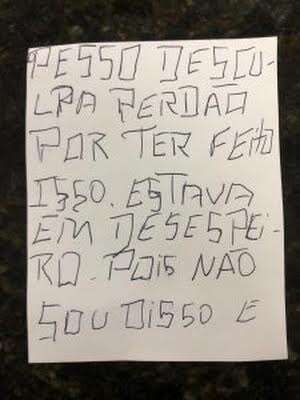 PESSO DESCU-
LPA PERDÃO
POR TER FEITO
ISSO. ESTAVA
EM DESESPEI-
RO. POIS NÃO
SOU DISSO E